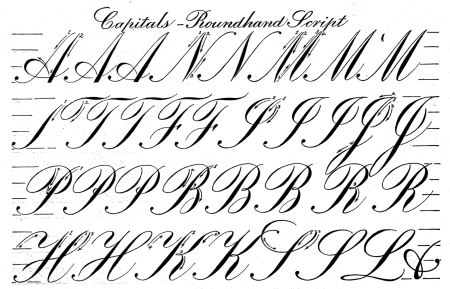 Capitals - Roundhand Script
A A A N N M M M
T T F F I I I J J
P P P B B B R R
H H K K S S L &